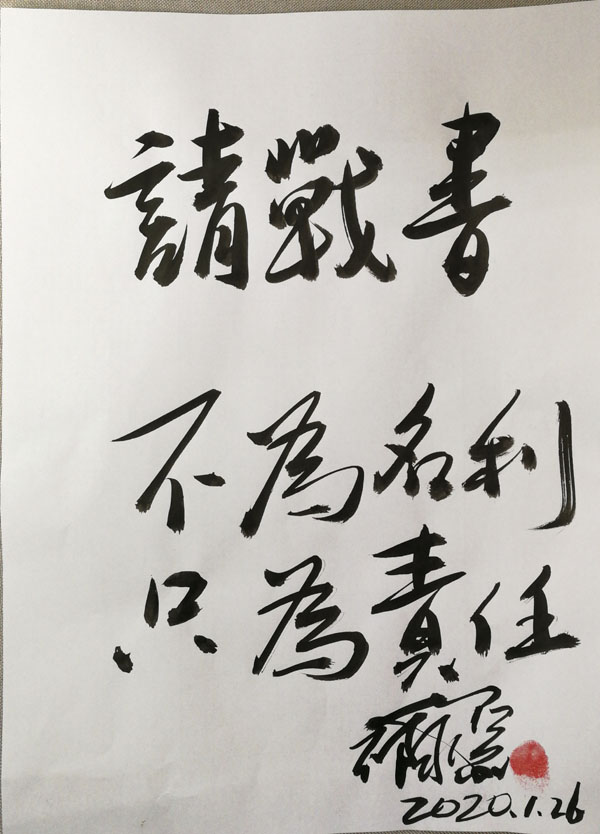 請戰書
不為名利
只為責任
2020.1.26